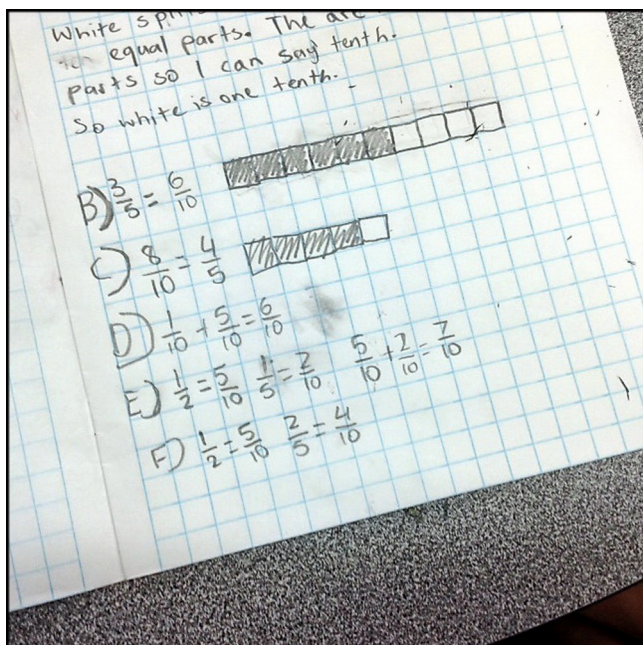 White
equal parts. The are
parts so I can say tenth.
So white is one tenth.
B) 3/5 = 6/10
C) 8/10 = 4/5
D) 1/10 + 5/10 = 6/10
E) 1/2 = 5/10 1/5 = 2/10 5/10 + 2/10 = 7/10
F) 1/2 = 5/10 2/5 = 4/10